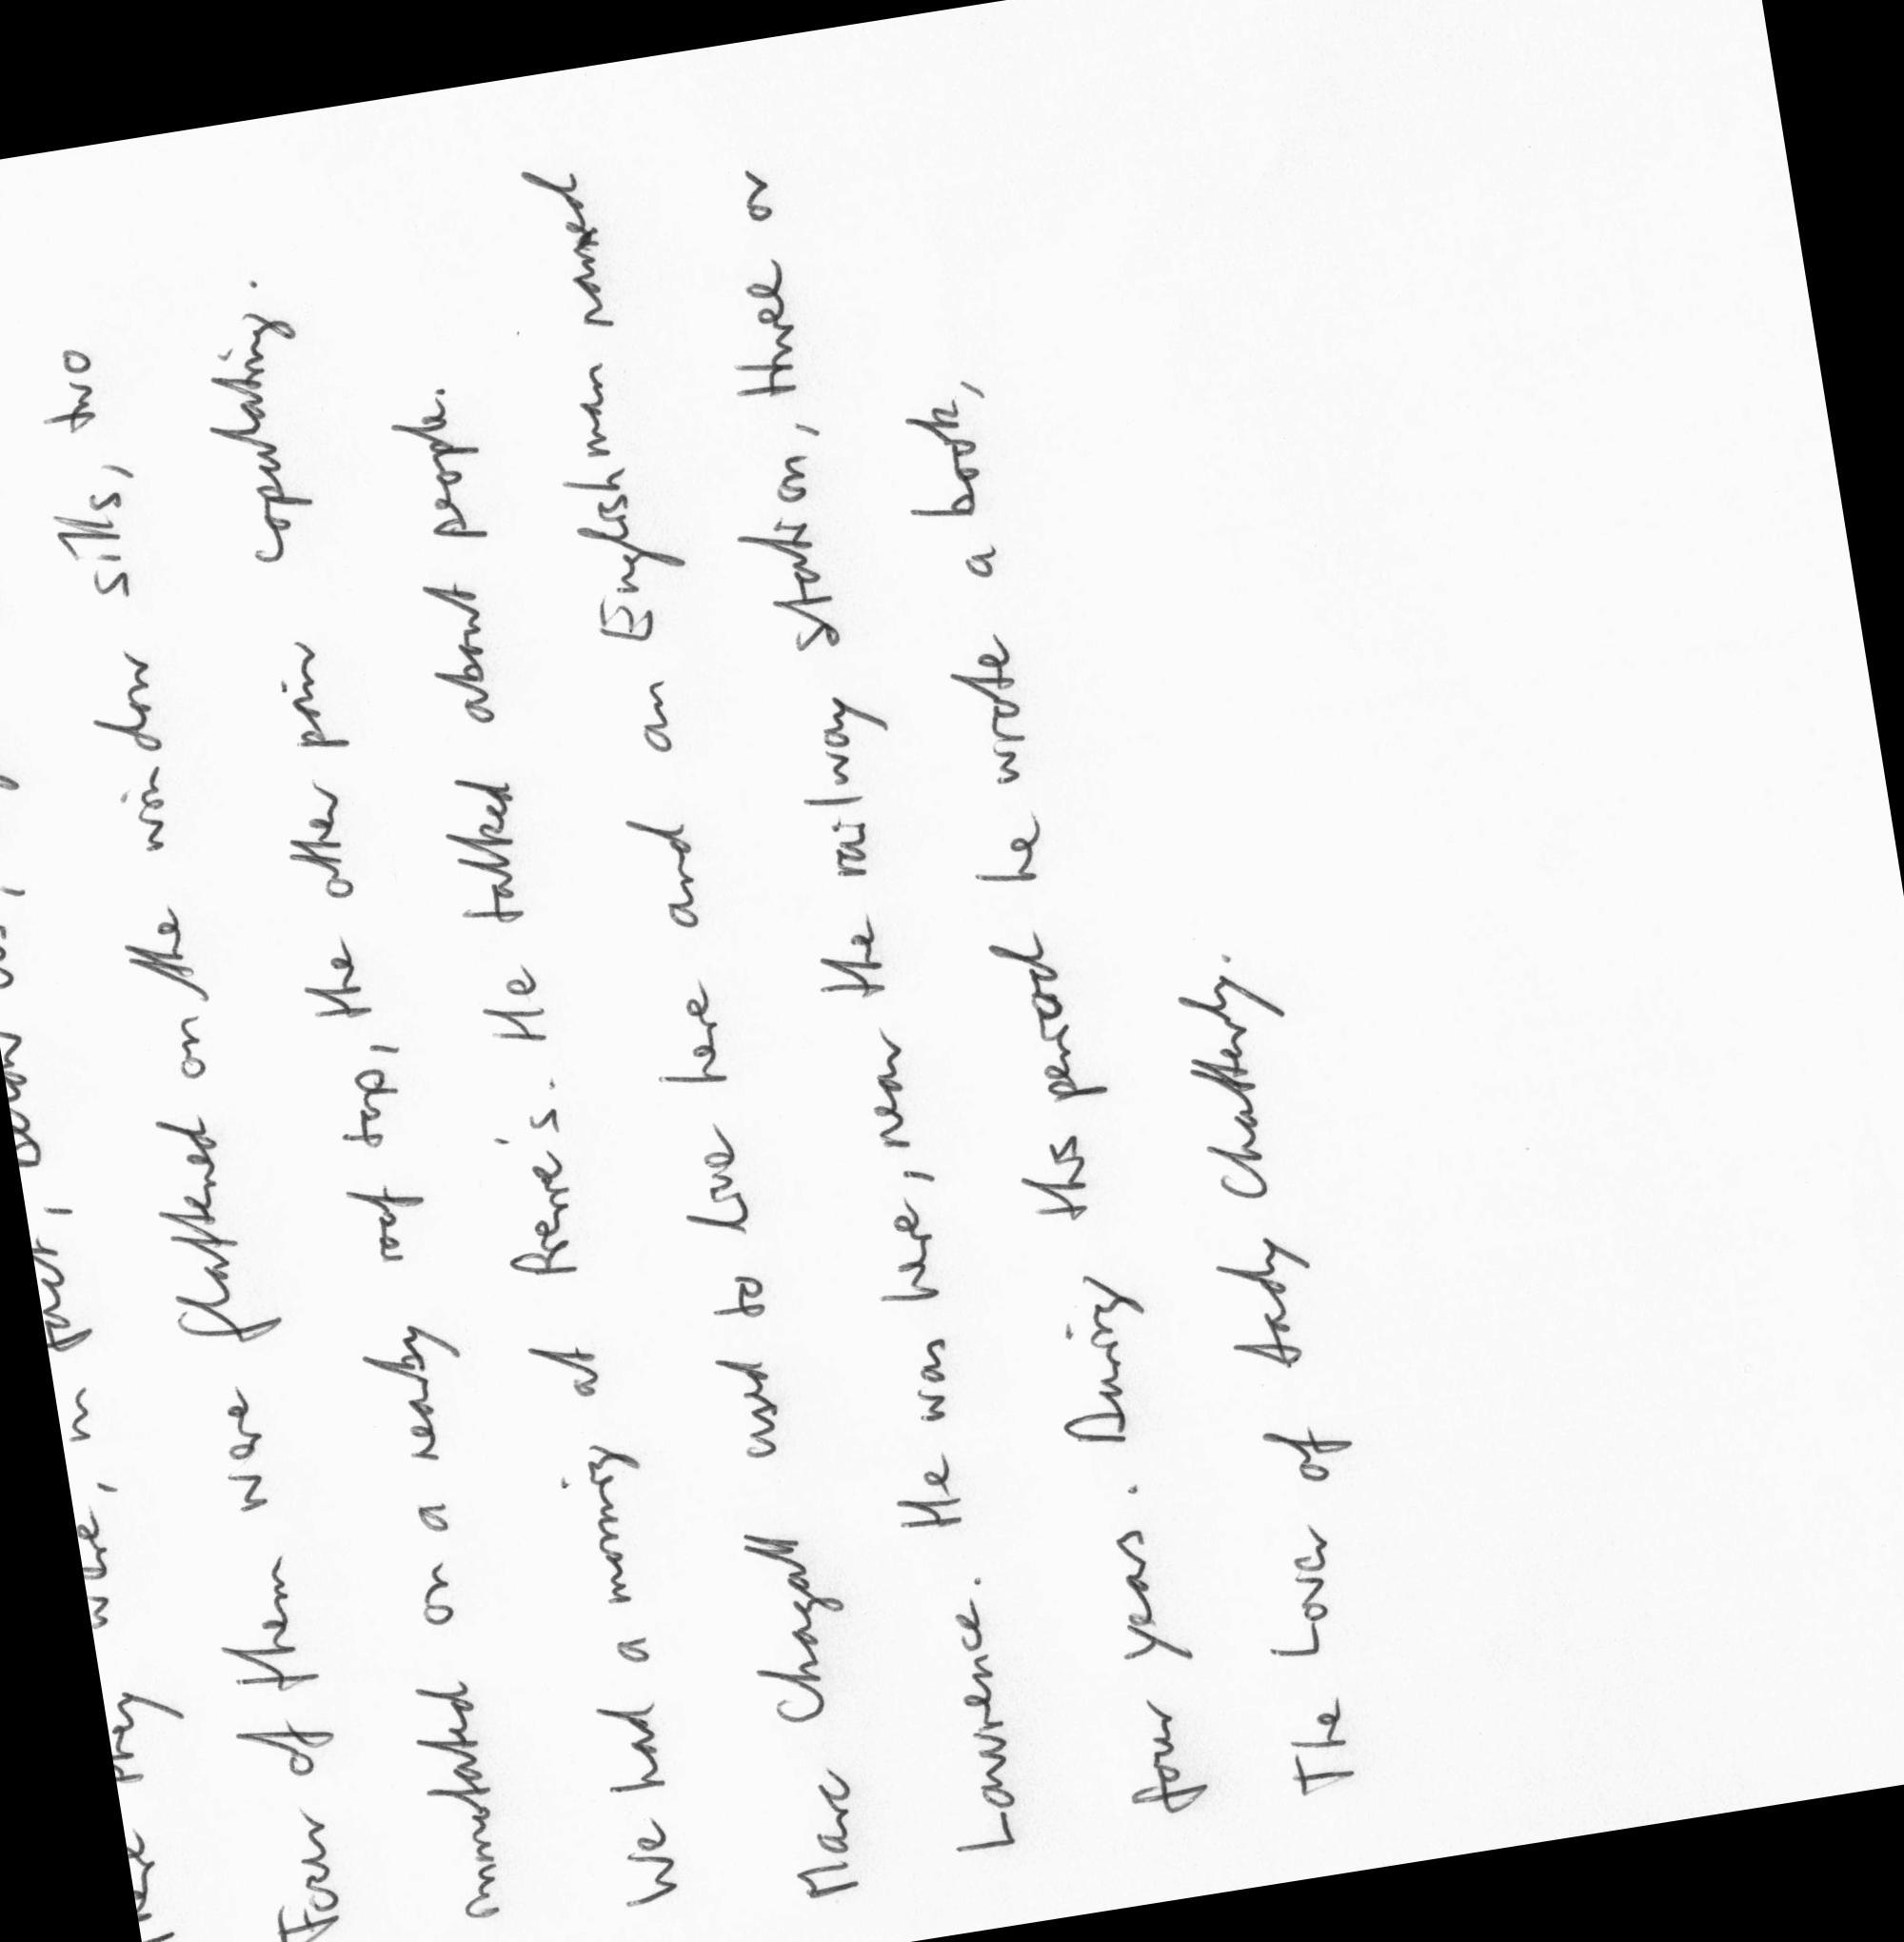 they were, in fact,
Four of them were flattened on the window sills, two
on a nearby roof top, the other pair copulating.
We had a morning at Pierre's. He talked about people.
Marc Chagall used to live here and an Englishman named
Lawrence. He was here, near the railway station, three or
four years. During this period he wrote a book,
The Lover of Lady Chatterly.